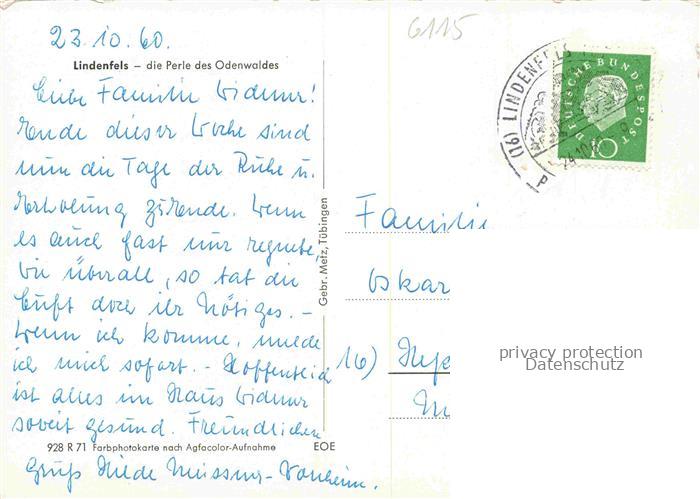 23.10.60.
6115
Lindenfels – die Perle des Odenwaldes
Liebe Familie Widmer!
Ende dieser Woche sind
nun die Tage der Ruhe u.
Erholung zu Ende. Wenn
es auch fast nur regnete,
wie überall, so tat die
Luft doch ihr Nötiges. –
Wenn ich komme, melde
ich mich sofort. – Hoffentlich
ist alles im Haus Widmer
soweit gesund. Freundlichen
Gruß Hilde
928 R 71 Farbphotokarte nach Agfacolor-Aufnahme EOE
Gebr. Metz, Tübingen
(16) LINDENFELS
24.10.6
DEUTSCHE BUNDESPOST
10
Familie
Oskar
16) Hep
privacy protection
Datenschutz